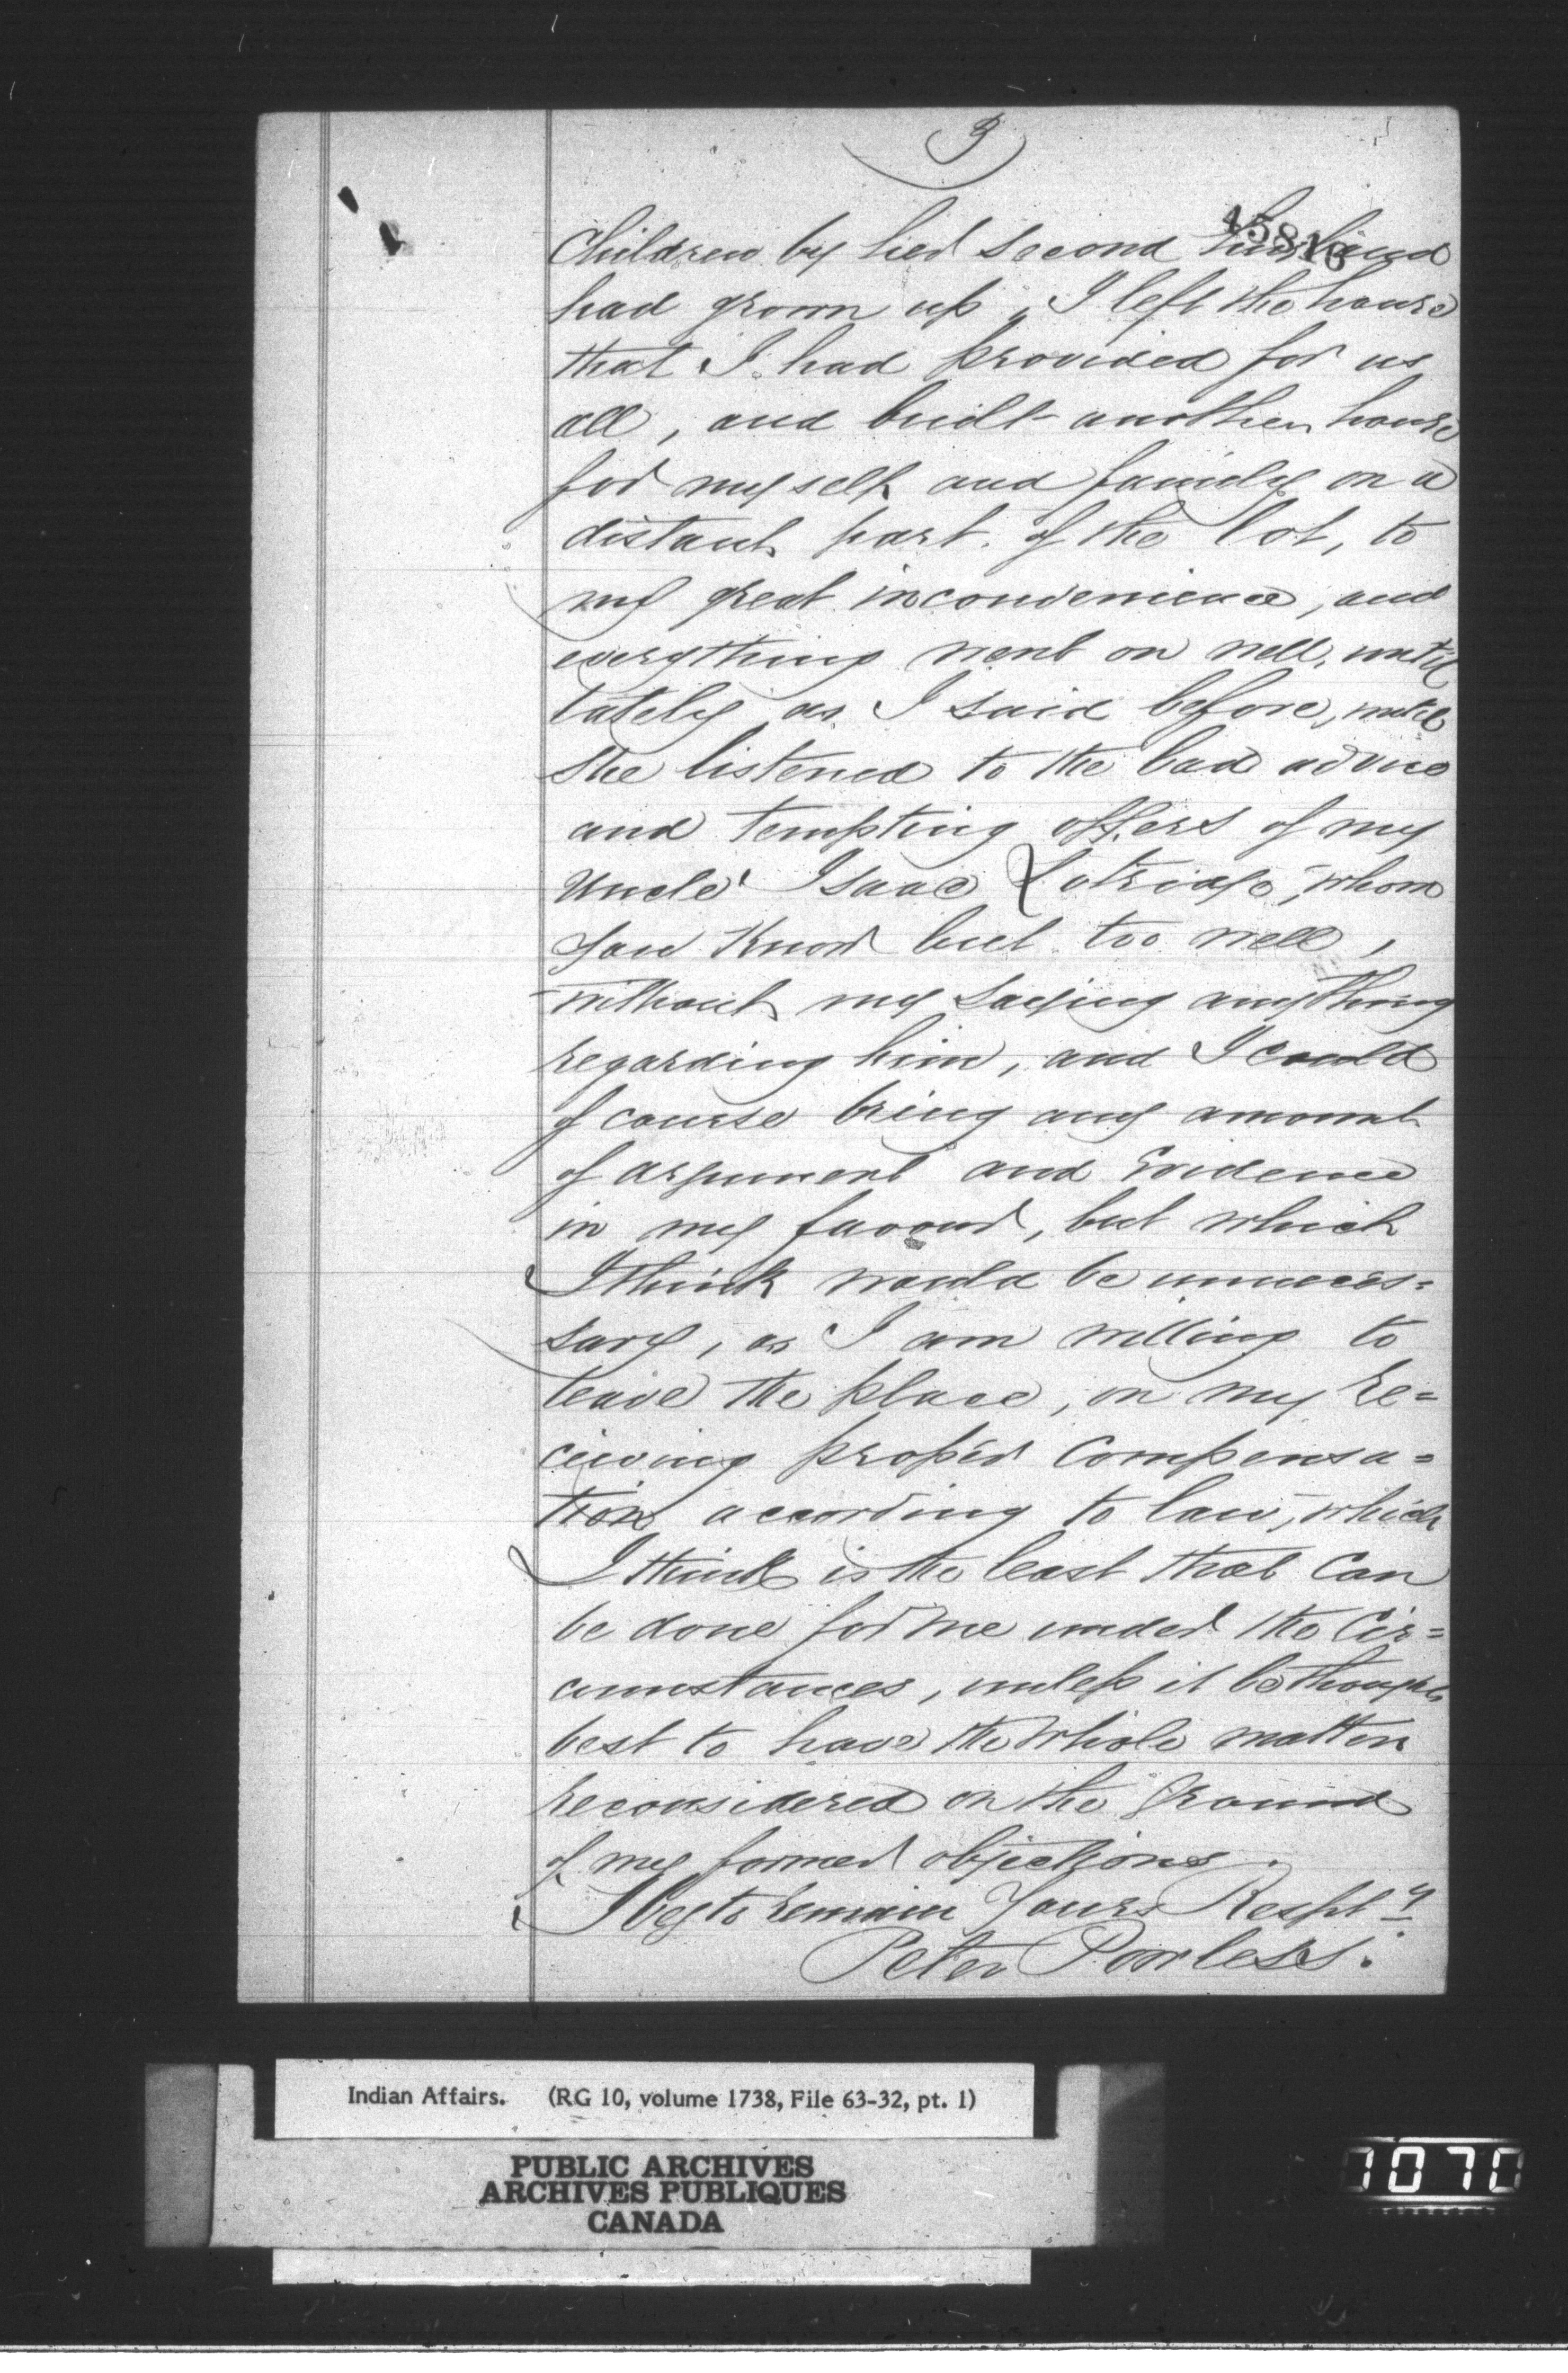 3
45816
Children by her second husband
had grown up, I left the house
that I had provided for us
all, and built another house
for myself and family on a
distant part of the lot, to
my great inconvenience, and
everything went on well, until
lately as I said before, until
she listened to the bad advice
and tempting offers of my
Uncle Isaac Lotridge, whom
you know but too well,
without my saying anything
regarding him, and I could
of course bring any amount
of argument and Evidence
in my favour, but which
I think would be unneces=
sary, as I am willing to
leave the place, on my re=
ceiving proper Compensa=
tion according to law, which
I think is the least that Can
be done for me under the Cir=
cumstances, unless it be thought
best to have the whole matter
reconsidered on the ground
of my former objections.
I beg to remain Yours Resptly
Peter Powless.
Indian Affairs. (RG 10, volume 1738, File 63-32, pt. 1)
PUBLIC ARCHIVES
ARCHIVES PUBLIQUES
CANADA
1070